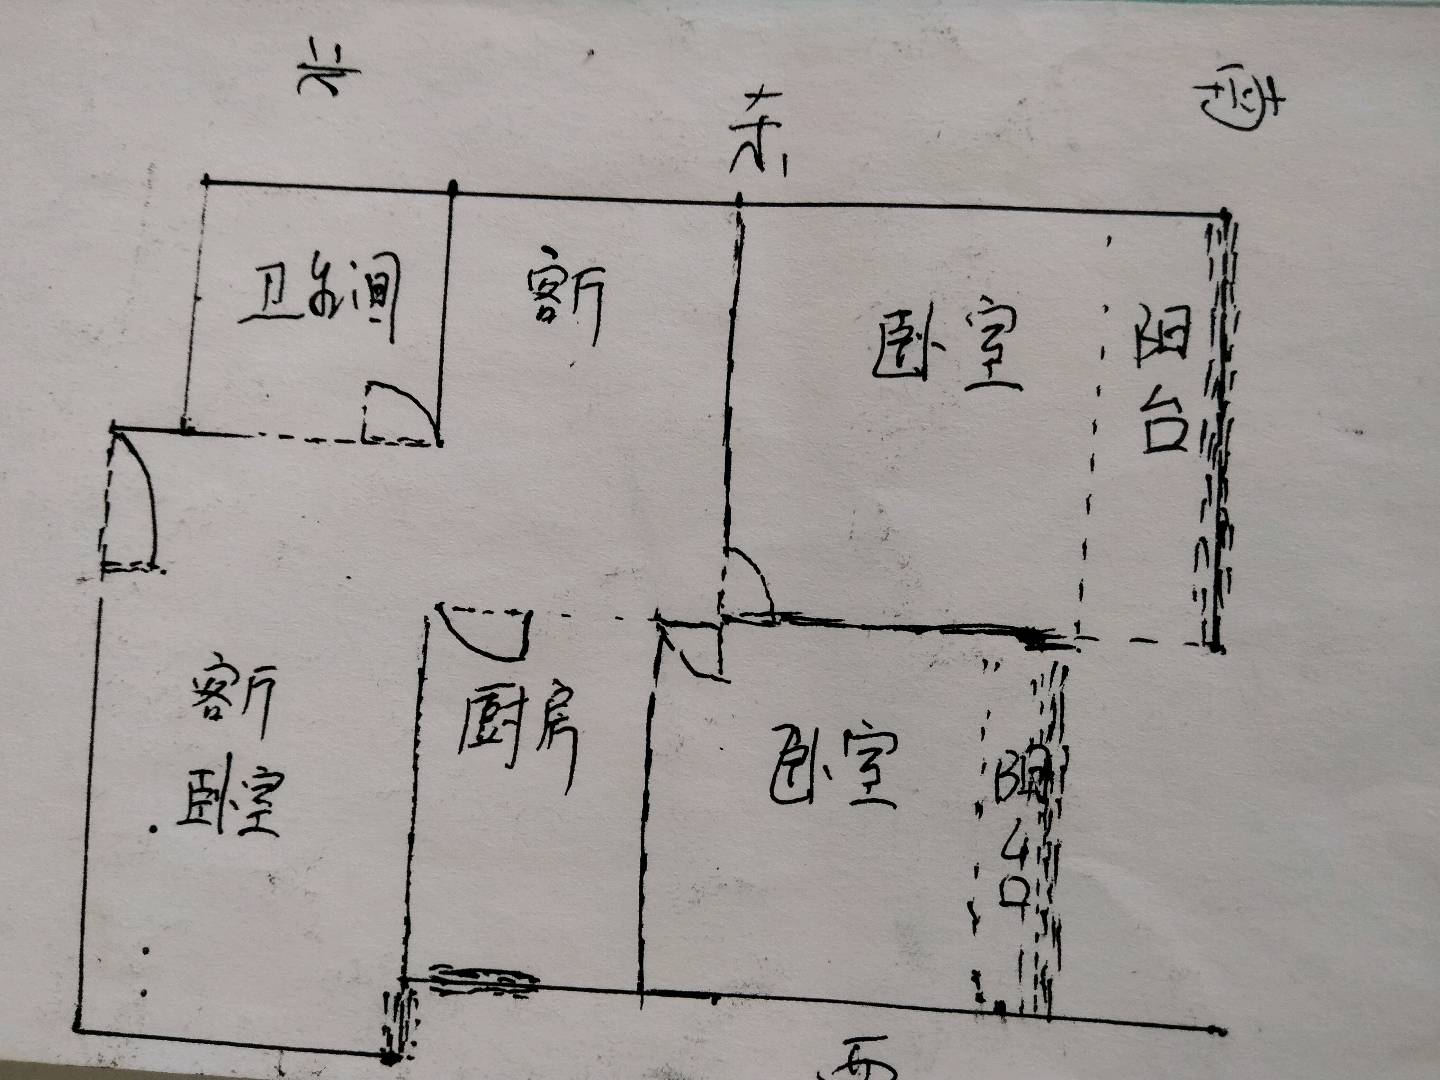 北
东
南
卫生间
客厅
卧室
阳台
客厅
卧室
厨房
卧室
阳台
西